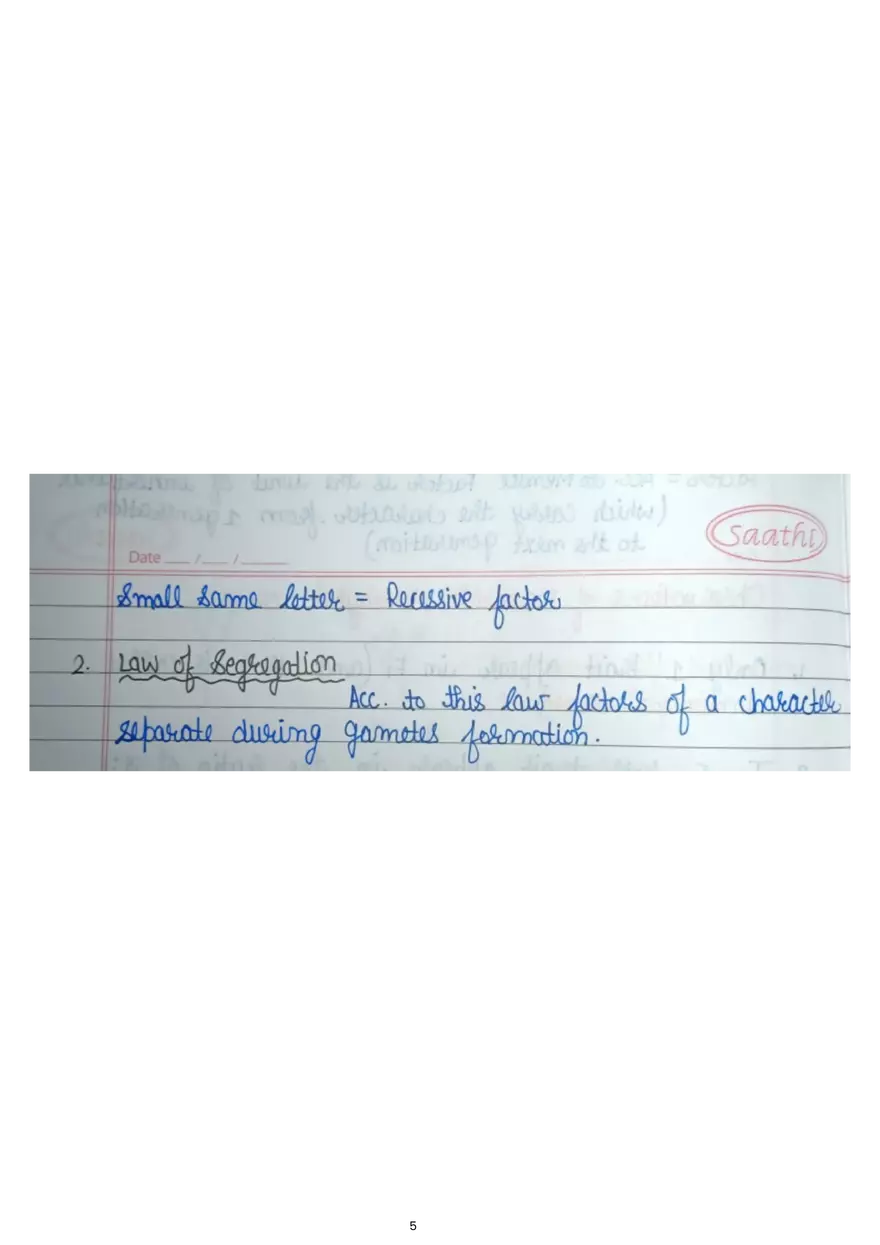 Saathi
Date ___ / ___ / ______
Small same letter = Recessive factor
2. Law of Segregation
Acc. to this law factors of a character
separate during gametes formation.
5